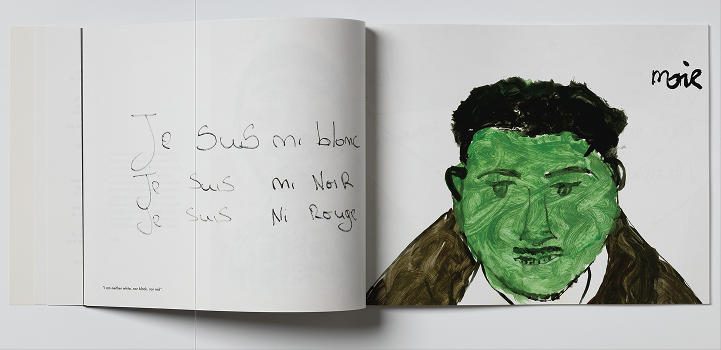 Je suis ni blanc
Je suis ni NOIR
Je suis Ni Rouge
"I am neither white, nor black, nor red".
moie